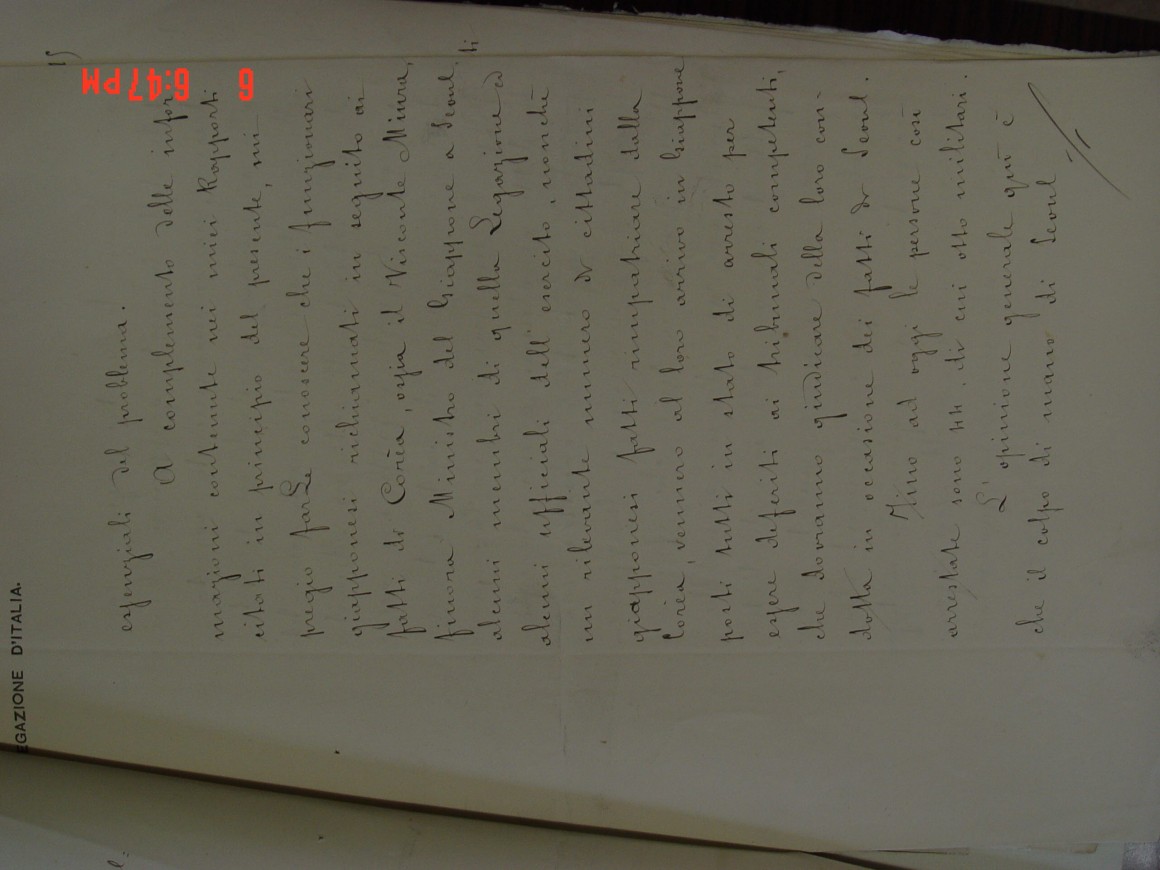 EGAZIONE D'ITALIA.
15
essenziali del problema.
A complemento delle infor
mazioni contenute nei miei Rapporti
citati in principio del presente, mi
pregio farLe conoscere che i funzionari
giapponesi richiamati in seguito ai
fatti di Corèa, ossia il Visconte Miura,
finora Ministro del Giappone a Seoul,
alcuni membri di quella Legazione ed
alcuni ufficiali dell'esercito, nonchè
un rilevante numero di cittadini
giapponesi fatti rimpatriare dalla
Corèa, vennero al loro arrivo in Giappone
posti tutti in stato di arresto per
essere deferiti ai tribunali competenti,
che dovranno giudicare della loro con-
dotta in occasione dei fatti di Seoul.
Fino ad oggi le persone così
arrestate sono 44. di cui otto militari.
L'opinione generale quì è
che il colpo di mano di Seoul
6 6:47PM